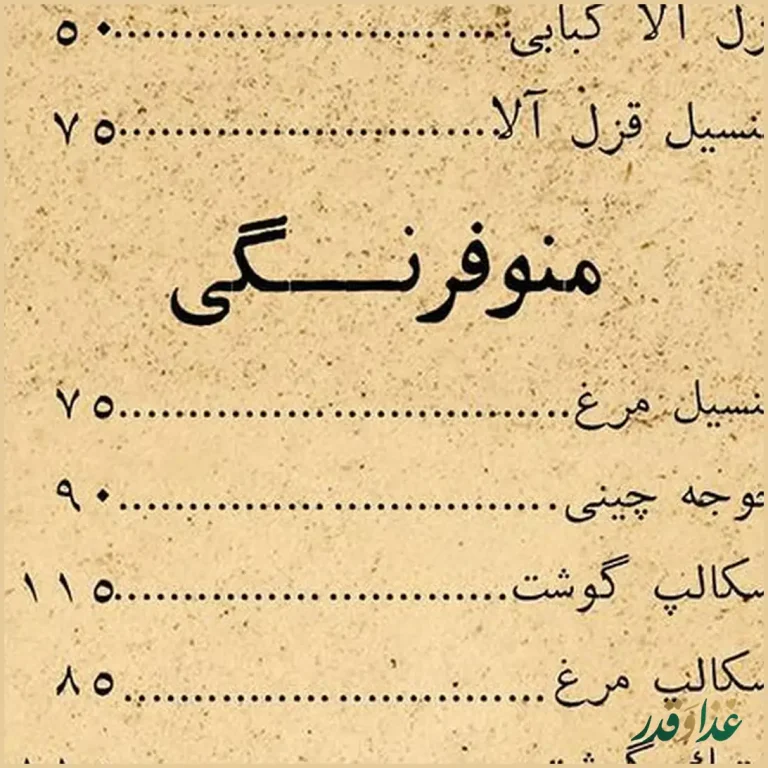 زل آلا کبابی........................۵۰
نسیل قزل آلا........................۷۵
منوفرنگی
نسیل مرغ........................۷۵
وجه چینی........................۹۰
سکالپ گوشت........................۱۱۵
سکالپ مرغ........................۸۵
غذا و قدر